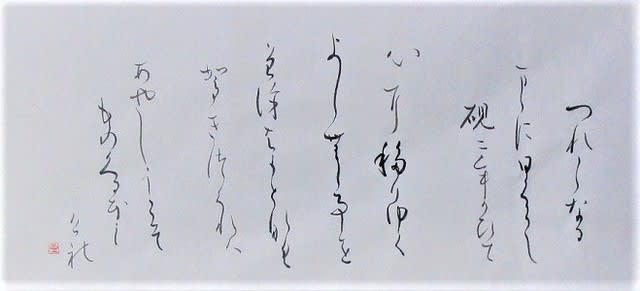 つれ〱なる
まゝに日くらし
硯にむかひて
心に移りゆく
よしなし事を
そこはかとなく
かきつくれハ
あやしうこそ
ものくるほし
けれ